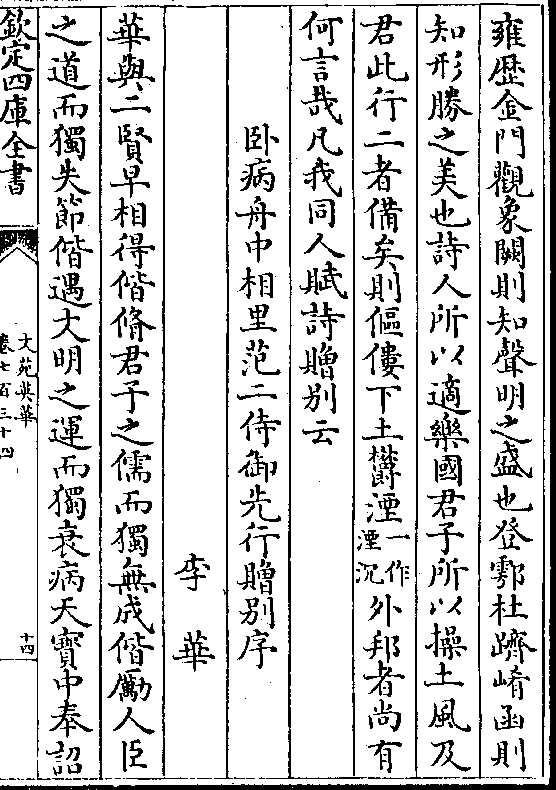 雍歴金門觀象闕則知聲明之盛也登鄠杜躋崤函則
知形勝之美也詩人所以適樂國君子所以操土風及
君此行二者備矣則傴僂下土欝湮一作湮沉外邦者尚有
何言哉凡我同人賦詩贈別云
卧病舟中相里范二侍御先行贈別序
李華
華與二賢早相得偕脩君子之儒而獨無成偕勵人臣
之道而獨失節偕遇大明之運而獨衰病天寶中奉詔
欽定四庫全書
文苑英華
卷七百三十四
十四